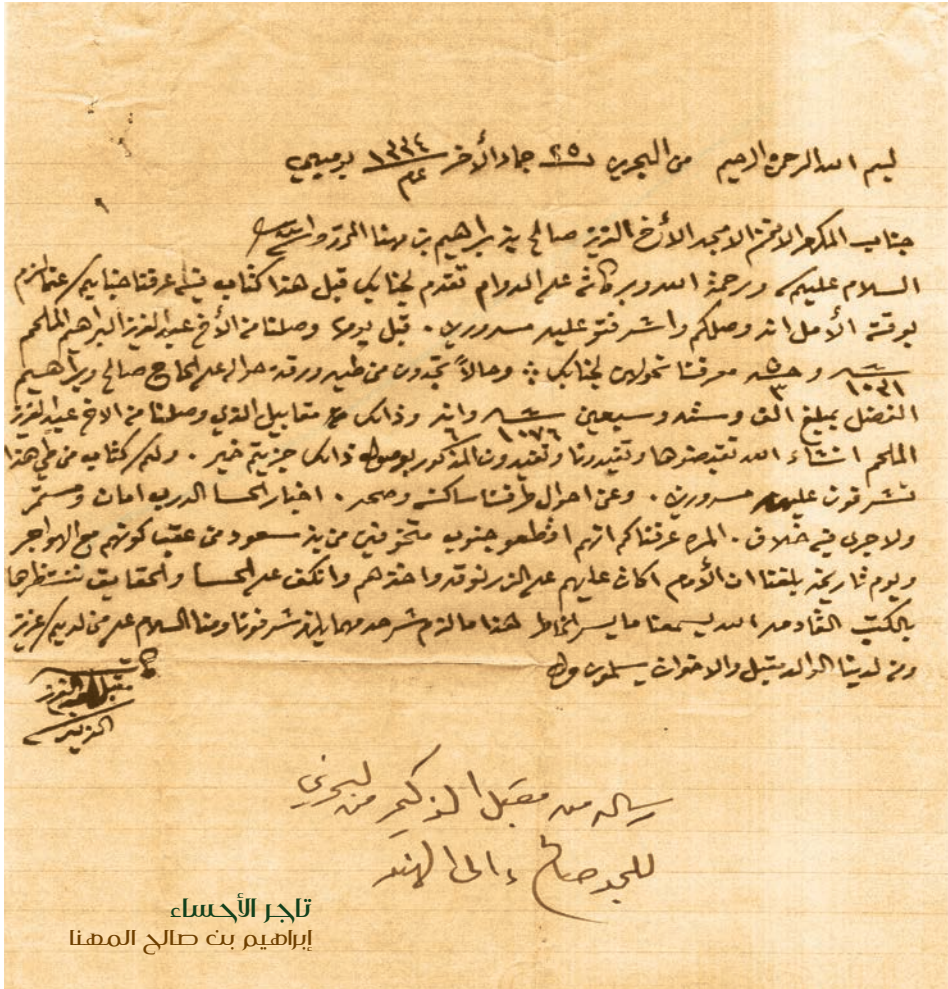 بسم الله الرحمن الرحيم من البحرين ٢٥ جماد الأخر ١٣٣٤ بومبي
جناب المكرم الافخم الامجد الأخ العزيز صالح بن براهيم بن مهنا المحترم
السلام عليكم ورحمة الله وبركاته على الدوام تقدم لجنابك قبل هذا كتاب
بوقته الأمل انه وصلكم واشرفتو عليه مسرورين . قبل يوم وصلنا من الأخ عبدالعزيز البراهيم الملحم
١٠٣١ ٥ ٣ معرفنا تحولهن لجنابك وحالاً تجدون من طيه ورقة حواله على الحاج صالح وبراهيم
الفضل بمبلغ الف وسته وسبعين ١٠٧٦ وانه وذالك مقابيل الذي وصلنا من الاخ عبدالعزيز
الملحم انشاء الله تقبضوها وتقيدونا وتفيدون المذكور بوصول ذالك جزيتم خير . ولكم كتاب من طي هذا
تشرفون عليه مسرورين . وعن احوال طرفنا ساكنه وصحه . اخبار الحسا الدرب امان ومستمر
ولا جرى فيه خلاف . المره عرفناكم انهم اقطعو جنوب متخوفين من بن سعود من عقب كونهم مع الهواجر
ويوم تاريخه بلغنا ان الأمام اكان عليهم على الزرنوقه واخذهم وانكف على الحسا والحقايق ننتظرها
بالكتب القادمه الله يسمعنا ما يسر الخاطر هذا ما لزم شرحه مهما يلزم شرفونا ومنا السلام على من لديكم عزيز
ومن لدينا الوالد مقبل والاخوان يسلمون
مقبل العبدالعزيز
الذكير
رساله من مقبل الذكير من البحرين
للجد صالح الى الهند
تاجر الأحساء
إبراهيم بن صالح المهنا